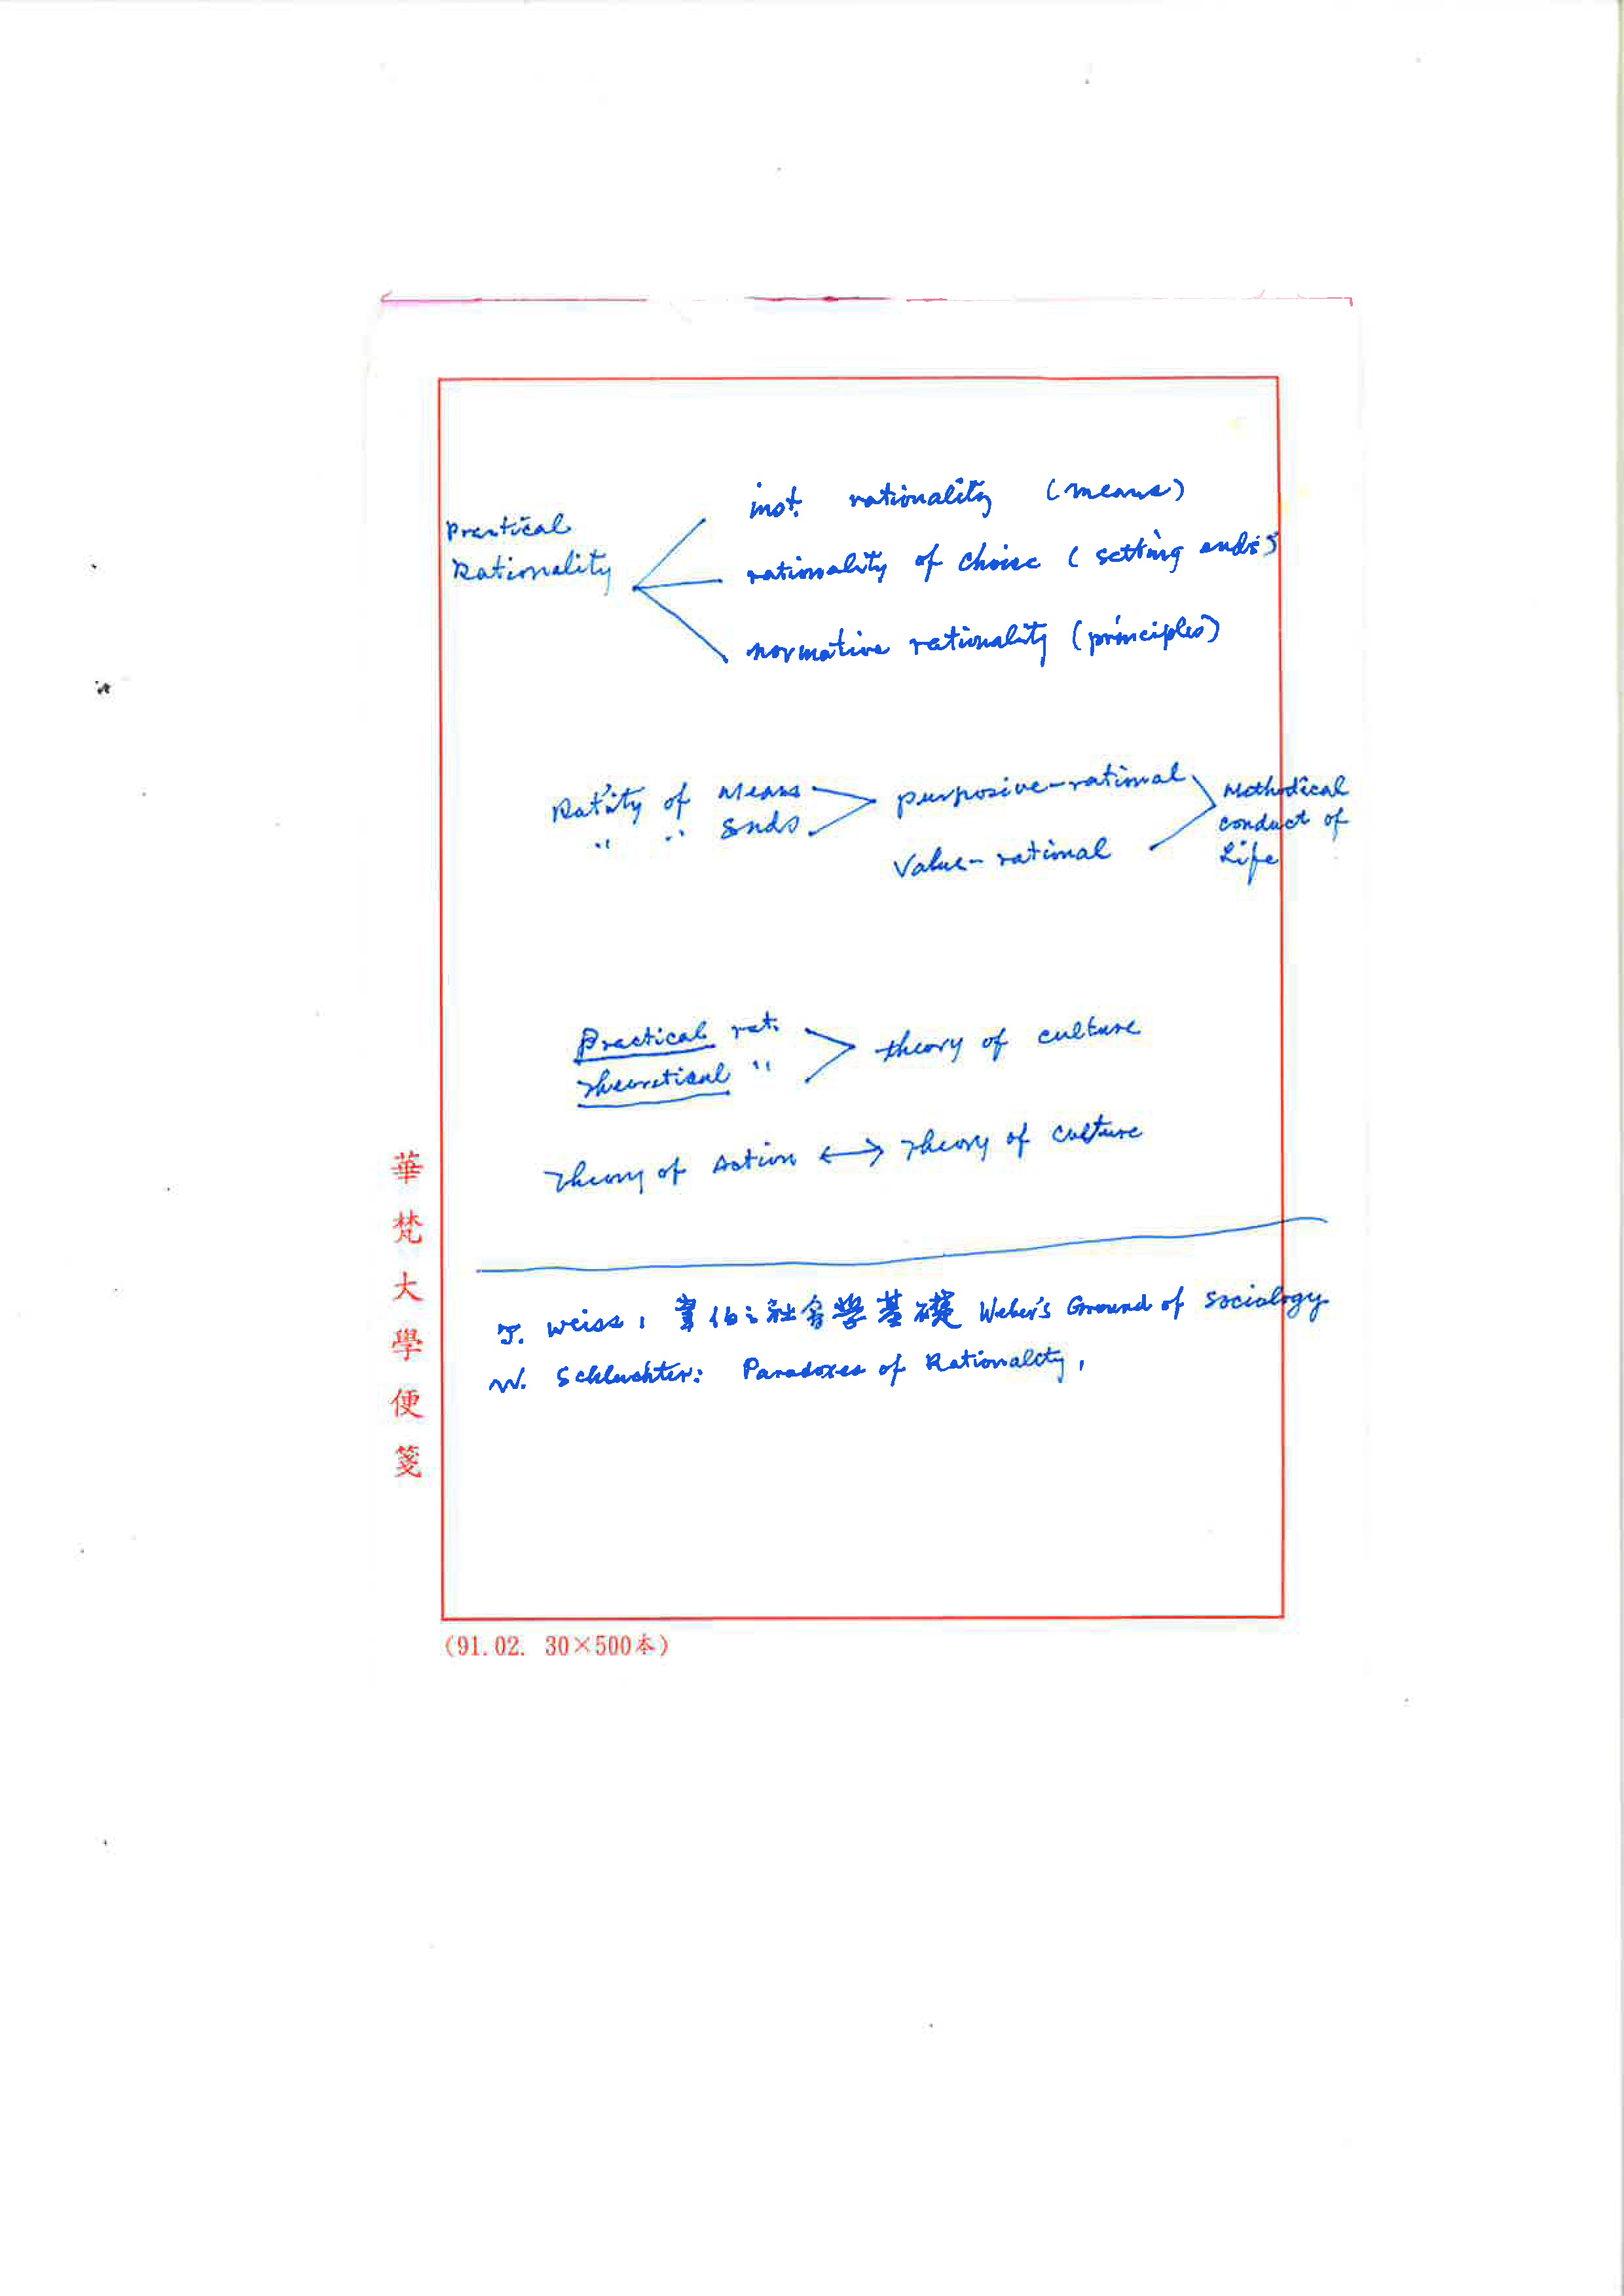 inst. rationality (means)
Practical
Rationality
rationality of choice (setting ends)
normative rationality (principles)
Rat'ity of Means
" " Ends
purposive-rational
Value-rational
Methodical
conduct of
Life
Practical rat.
Theoretical "
theory of culture
Theory of Action ↔ Theory of Culture
J. Weiss, 韋伯之社會學基礎 Weber's Ground of Sociology
W. Schluchter: Paradoxes of Rationality,
華梵大學便箋
(91.02. 30×500本)